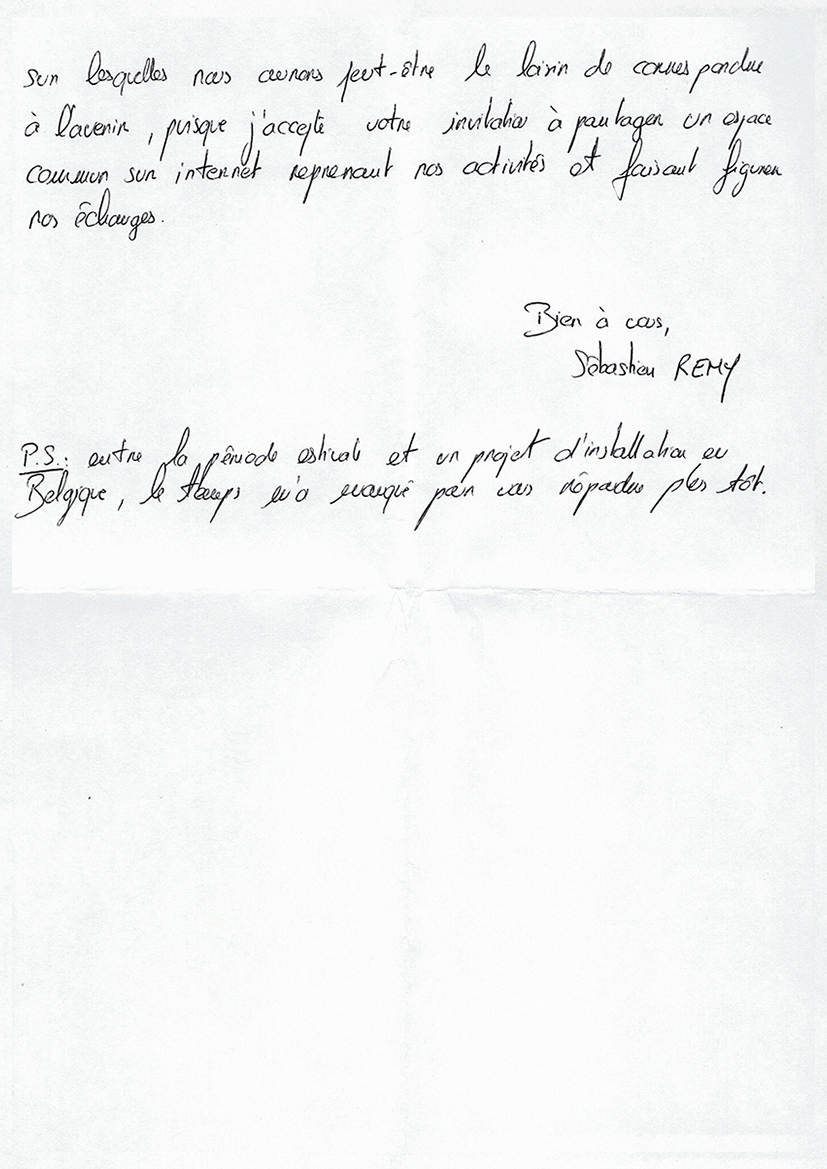 sur lesquelles nous aurons peut-être le loisir de correspondre
à l'avenir, puisque j'accepte votre invitation à partager un espace
commun sur internet reprenant nos activités et faisant figurer
nos échanges.
Bien à vous,
Sébastien REMY
P.S.: entre la période estivale et un projet d'installation en
Belgique, le temps m'a manqué pour vous répondre plus tôt.